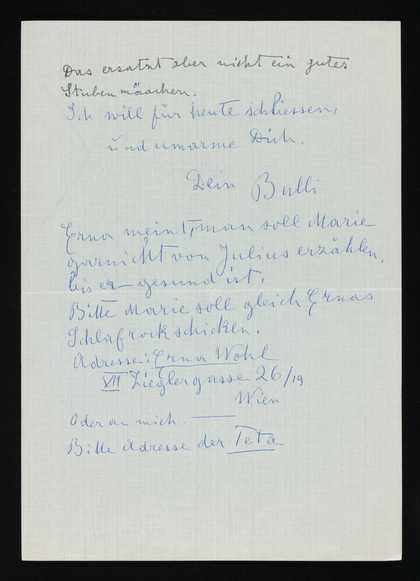 Das ersetzt aber nicht ein gutes
Stubenmädchen.
Ich will für heute schliessen,
und umarme Dich.
Dein Bulli
Erna meint, man soll Marie
garnicht von Julius erzählen,
bis er gesund ist.
Bitte Marie soll gleich Ernas
Schlafrock schicken.
Adresse: Erna Wohl
VII Zieglergasse 26/19
Wien
Oder an mich.
Bitte Adresse der Teta